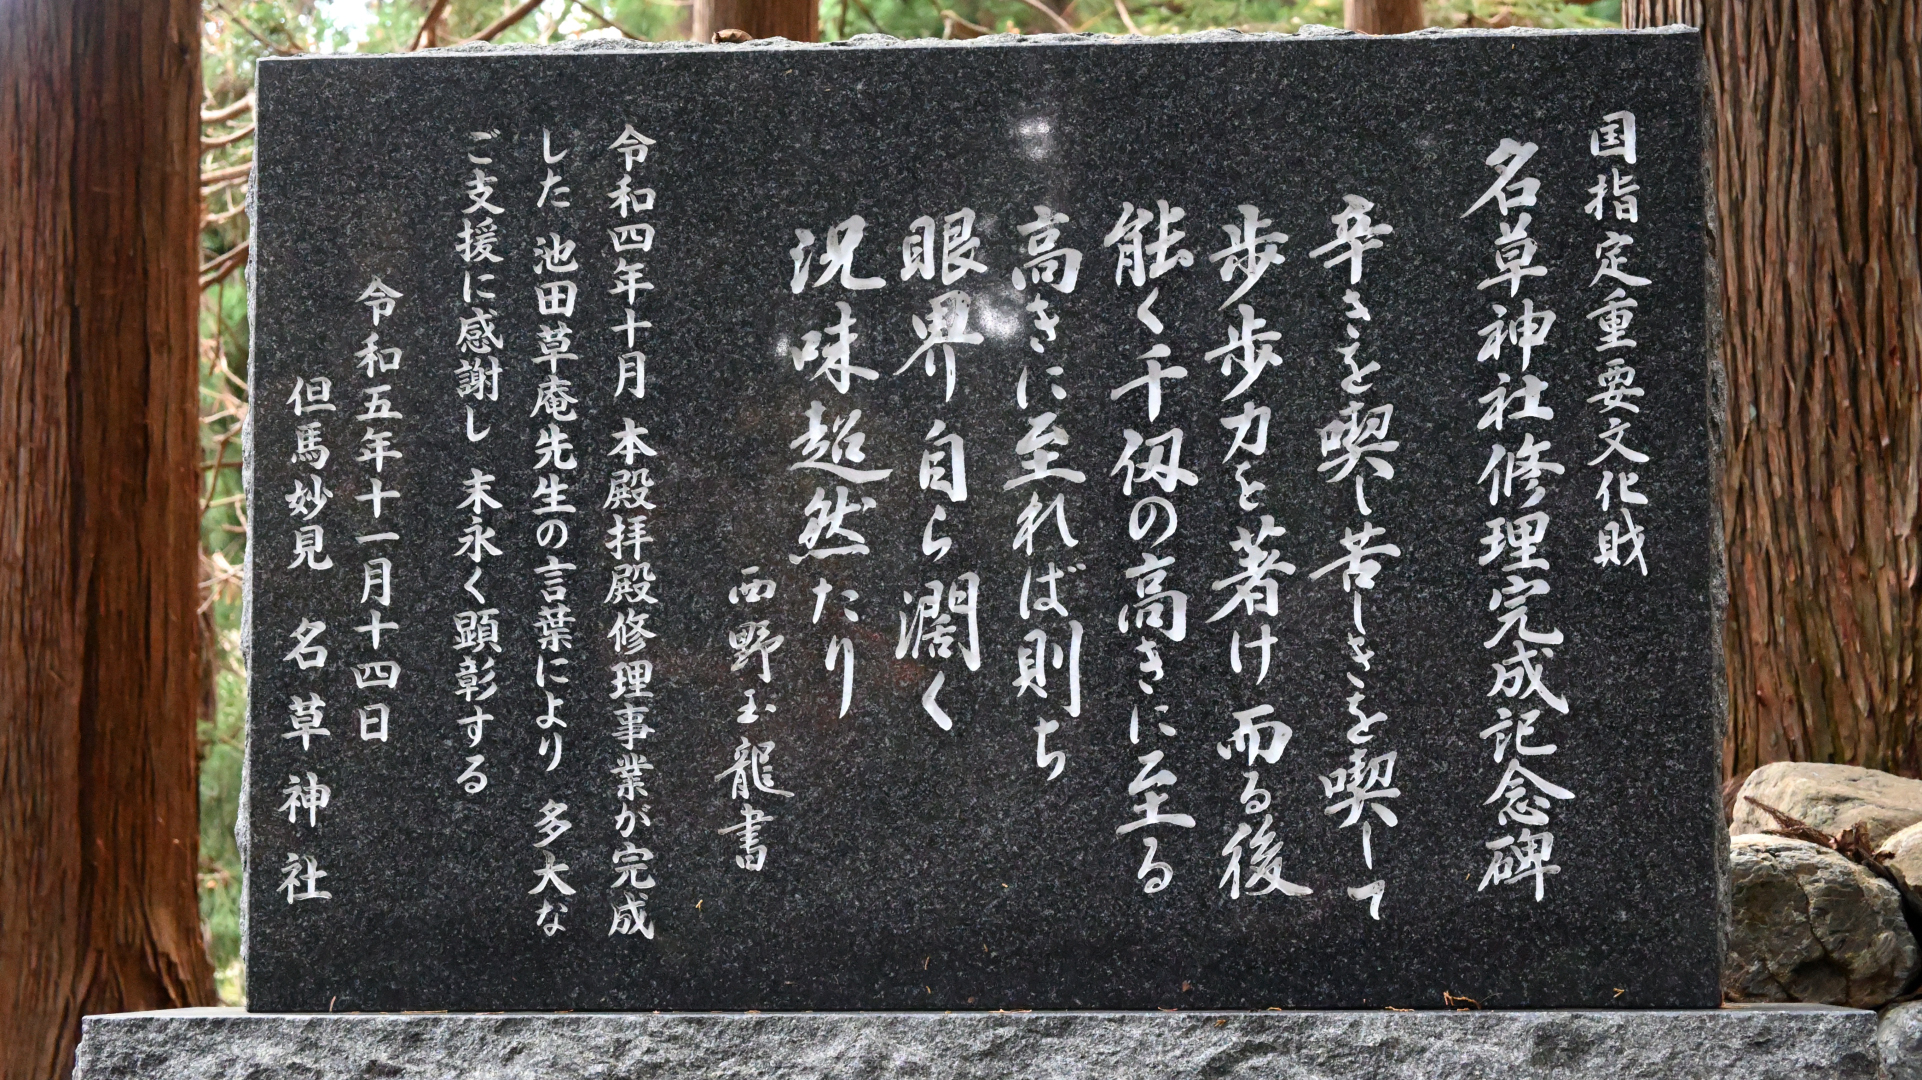 国指定重要文化財
名草神社修理完成記念碑
辛きを喫し苦しきを喫して
歩歩力を著け而る後
能く千仭の高きに至る
高きに至れば則ち
眼界自ら濶く
況味超然たり
西野玉龍書
令和四年十月 本殿拝殿修理事業が完成
した 池田草庵先生の言葉により 多大な
ご支援に感謝し 末永く顕彰する
令和五年十一月十四日
但馬妙見 名草神社